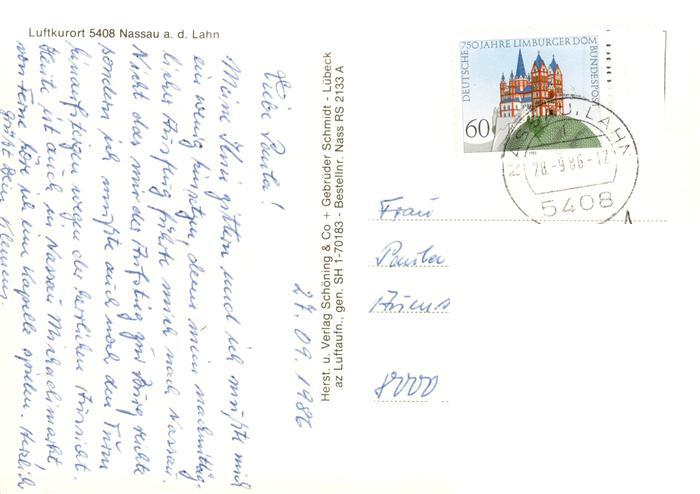 Luftkurort 5408 Nassau a. d. Lahn
27.09.1986
Liebe Paula!
Meine Knie zittern und ich mußte mich
ein wenig hinsetzen, denn mein nachmittäg-
licher Ausflug führte mich nach Nassau.
Nicht das mir der Aufstieg zur Burg reichte
sondern ich mußte auch noch den Turm
hinaufsteigen wegen der herrlichen Aussicht.
Heute ist auch in Nassau Michaelimarkt,
von Ferne höre ich eine Kapelle spielen. Herzlich
grüßt Dein Klemens.
Herst. u. Verlag Schöning & Co + Gebrüder Schmidt - Lübeck
az Luftaufn., gen. SH 1-70183 - Bestellnr. Nass RS 2133 A
750 JAHRE LIMBURGER DOM
DEUTSCHE BUNDESPOST
60
NASSAU, LAHN
28.-9.86-17
5408
Frau
Paula
8000